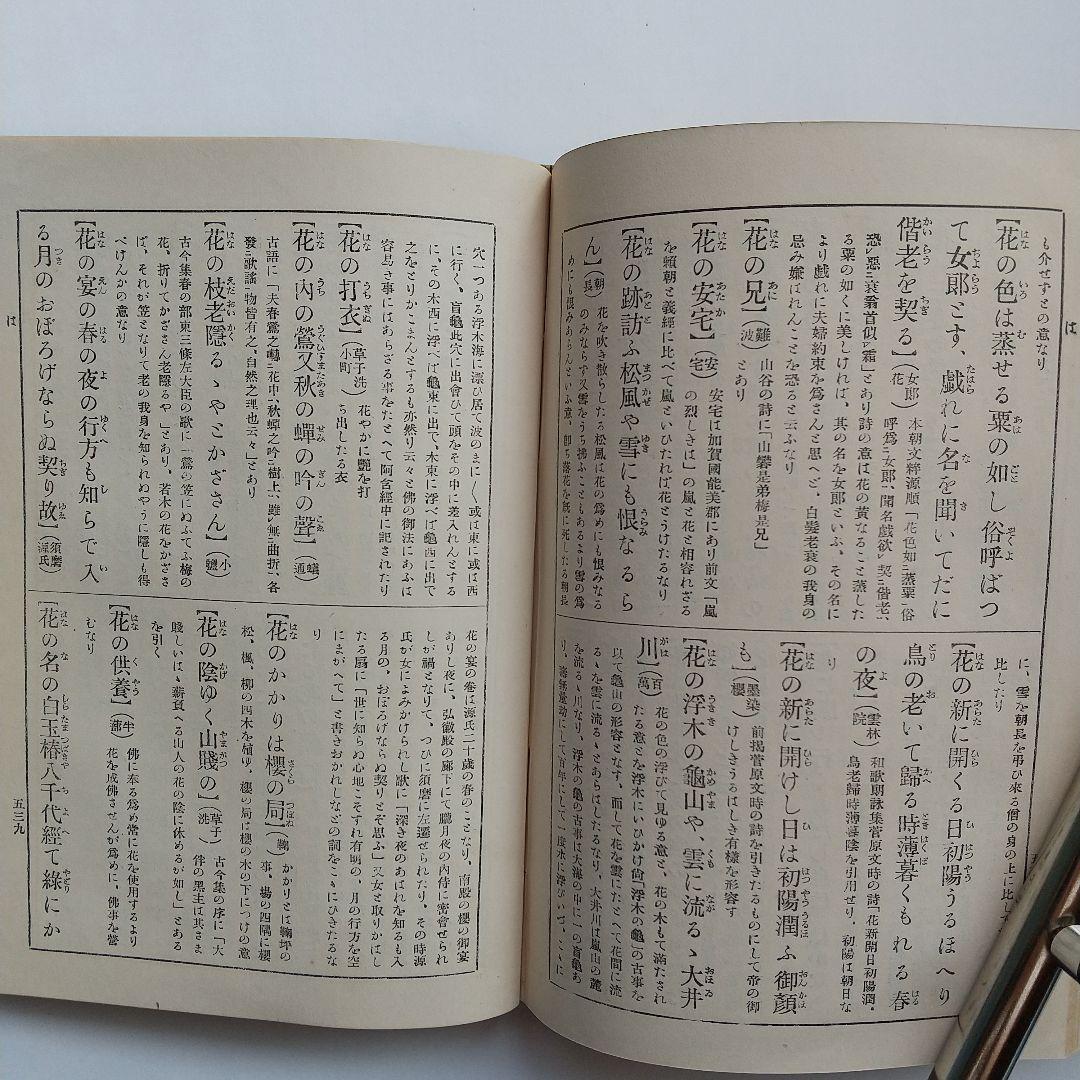 は
も介せずとの意なり
【花の色は蒸せる粟の如し俗呼ばつ
て女郎とす、戯れに名を聞いてだに
偕老を契る】(女郎花) 本朝文粹源順「花色如蒸粟、俗
呼爲女郎、聞名戯欲契偕老、
恐惡衰翁首似霜」とあり詩の意は花の黄なること蒸した
る粟の如くに美しければ、其の名を女郎といふ、その名に
より戯れに夫婦約束を爲さんと思へど、白髮老衰の我身の
忌み嫌はれんことを恐ると云ふなり
【花の兄】(難波) 山谷の詩に「山礬是弟梅是兄」
とあり
【花の安宅】(安宅) 安宅は加賀國能美郡にあり前文「嵐
の烈しきは」の嵐と花と相容れざる
を賴朝と義經に比べて嵐といひたれば花とうけたるなり
【花の跡訪ふ松風や雪にも恨なるら
ん】(朝長) 花を吹き散らしたる松風は花の爲めにも恨みなる
のみならず又雪をうち拂ふこともあるより雪の爲
めにも恨みあらんといふ意、卽ち落花を旣に死したる朝長
に、雪を朝長を弔ひ來る僧の身の上に比して
比したり
【花の新に開くる日初陽うるほへり
鳥の老いて歸る時薄暮くもれる春
の夜】(雲林院) 和歌朗詠集菅原文時の詩「花新開日初陽潤、
鳥老歸時薄暮陰を引用せり、初陽は朝日な
り
【花の新に開けし日は初陽潤ふ御顏
も】(墨染櫻) 前揭菅原文時の詩を引きたるものにして帝の御
けしきうるはしき有樣を形容す
【花の浮木の龜山や、雲に流るゝ大井
川】(百萬) 花の色の浮びて見ゆる意と、花の木もて滿たされ
たる意と浮木にいひかけ尙「浮木の龜」の古事を
以て龜山の形容となす、而して花を雲にたとへて花間に流
るゝを雲に流るゝとあらはしたるなり、大井川は嵐山の麓
を流るゝ川なり、浮木の龜の古事は大海の中に一の盲龜あ
り、壽無量劫にして百年にして一度水に浮びいづ、こゝに
は
穴一つある浮木海に漂ひ居て、波のまに〳〵或は東に或は西
に行く、盲龜此穴に出會ひて頭をその中に差入れんとする
に、その木西に浮べば龜東に出で、木東に浮べば龜西に出で
之をとりかこまんとするも亦然り云々と佛の御法にあふは
容易き事にはあらざる事をたとへて阿含經中に記されたり
【花の打衣】(草子洗小町) 花やかに艷を打
ち出したる衣
【花の内の鶯又秋の蟬の吟の聲】(蟻通)
古語に「夫春鶯之囀花中、秋蟬之吟樹上、雖無曲折、各
發歌謠物皆有之、自然之理也云々」とあり
【花の枝老隱るゝやとかざさん】(小鹽)
古今集春の部東三條左大臣の歌に「鶯の笠にぬふてふ梅の
花、折りてかざさん老隱るや」とあり、若木の花をかざさ
ば、それが笠となりて老の我身を知られぬやうに隱しも得
べけんかの意なり
【花の宴の春の夜の行方も知らで入
る月のおぼろげならぬ契り故】(須磨源氏)
花の宴の卷は源氏二十歲の春のことなり、南殿の櫻の御宴
ありし夜に、弘徽殿の廊下にて朧月夜の内侍に密會せられ
しが禍となりて、つひに須磨に左遷せられたり、その時源
氏が女によみかけられし歌に「深き夜のあはれを知るも入
る月の、おぼろげならぬ契りとぞ思ふ」又女と取りかはし
たる扇に「世に知らぬ心地こそすれ有明の、月の行方を空
にまがへて」と書きおかれしなどの詞をこゝにひきたるな
り
【花のかかりは櫻の局】(鞠) かかりとは鞠坪の
事、場の四隅に櫻
松、楓、柳の四木を植ゆ、櫻の局は櫻の木の下につけの意
【花の陰ゆく山賤の】(草子洗) 古今集の序に「大
伴の黑主は其さま
賤しいはゞ薪負へる山人の花の陰に休めるが如し」とある
を引く
【花の供養】(半蔀) 佛に奉る爲め常に花を使用するより
花を成佛させんが爲めに、佛事を營
むなり
【花の名の白玉椿八千代經て綠にか
五三九